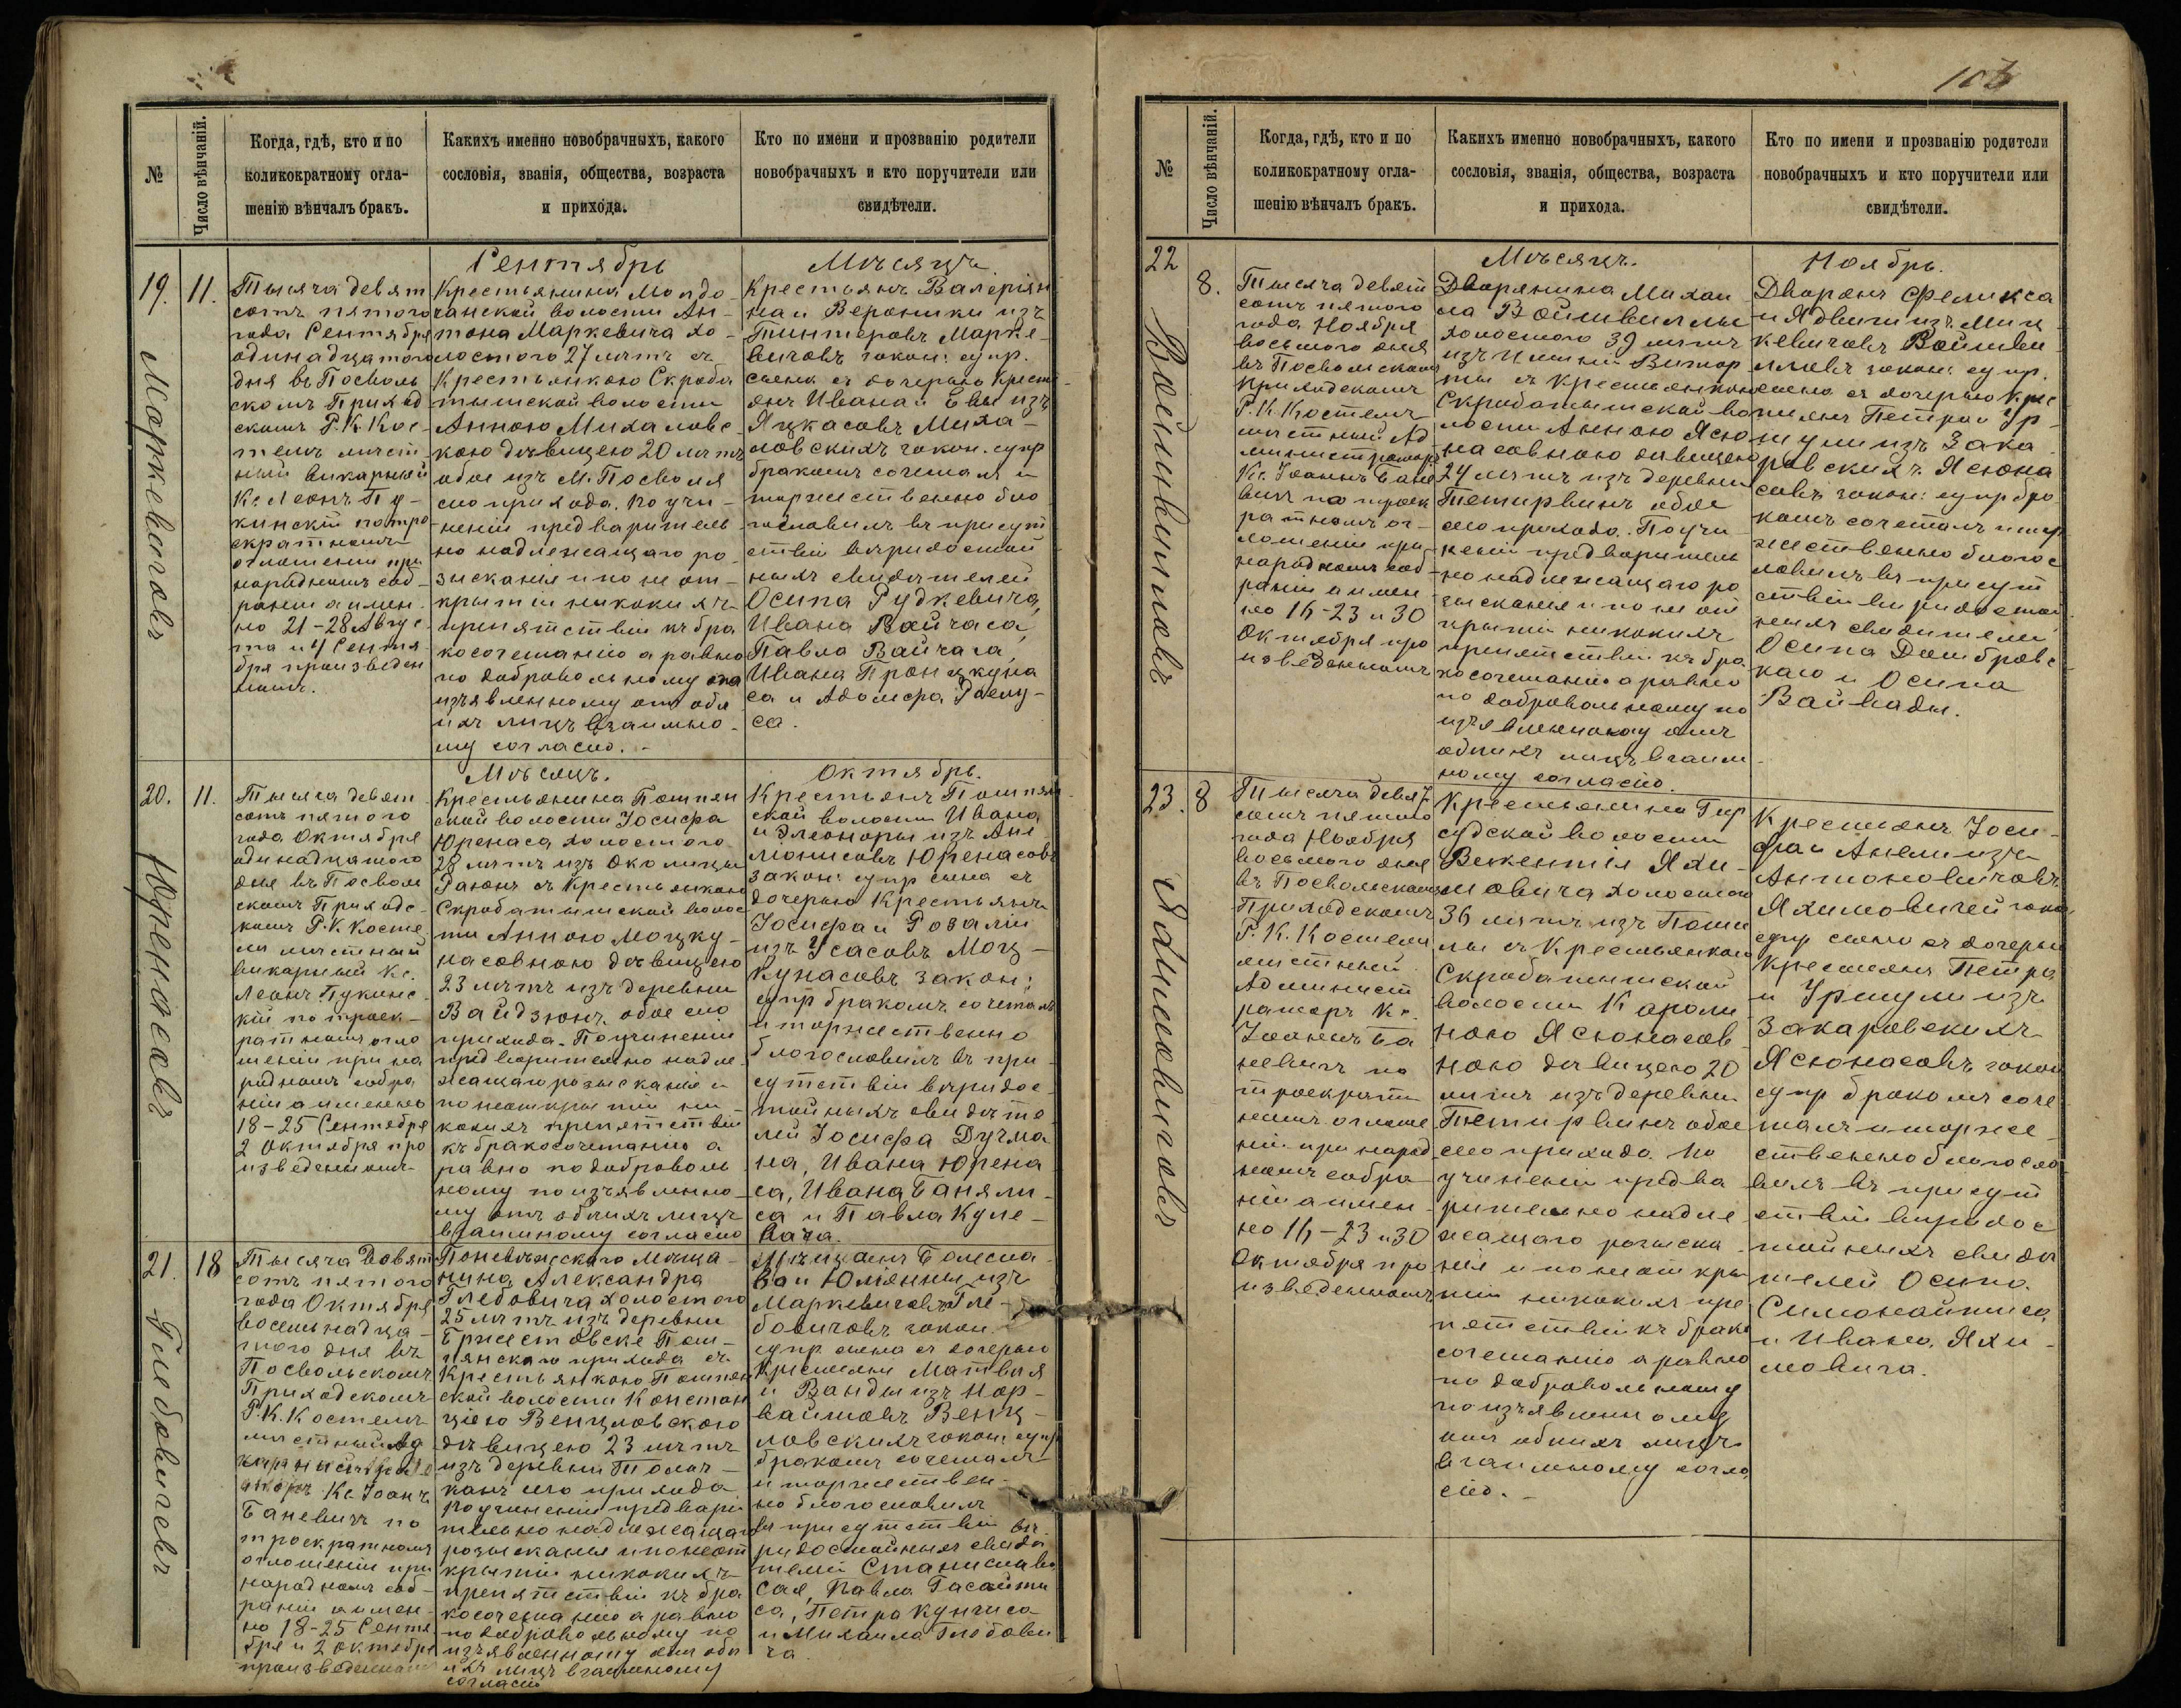 №
Число вѣнчаній.
Когда, гдѣ, кто и по
коликократному огла-
шенію вѣнчалъ бракъ.
Какихъ именно новобрачныхъ, какого
сословія, званія, общества, возраста
и прихода.
Кто по имени и прозванію родители
новобрачныхъ и кто поручители или
свидѣтели.
Сентябрь
Мѣсяцъ.
19.
11.
Маркевичовъ
Тысяча девят
сотъ пятого
года Сентября
одинадцатого
дня въ Посволь
скомъ Приход
скомъ Р. К. Кос-
телѣ мѣст-
ный викарный
Кс. Леонъ Пу-
кинскій по тро
екратномъ
оглашеніи при
народномъ соб-
раніи а имен-
но 21-28 Авгус
та и 4 Сентя
бря произведен
номъ.
Крестьянина
чанской волости Ан-
тона Маркевича хо-
лостого 27 лѣтъ съ
Крестьянкою Скроба
тышской волости
Анною Михаловс-
кою дѣвицею 20 лѣтъ
обое изъ М. Посволя
сего прихода. По учи-
неніи предваритель
но надлежащаго ро
зысканія и по не от-
крытіи никакихъ
препятствій къ бра
косочетанію а равно
по добровольному
изъявленному отъ обо
ихъ лицъ взаимно-
му согласію.
Крестьянъ Валеріян
на и Вероники изъ
Тинтеровъ Марке-
вичовъ закон: супр.
сына съ дочерью Крест-
янъ Ивана и Евы изъ
Яцкасовъ Миха-
ловскихъ закон. супр
бракомъ сочеталъ и
торжественно бло
гословилъ въ присут
ствіи вѣридостой
ныхъ свидѣтелей
Осипа Рудкевича,
Ивана Вайчаса,
Павла Вайчаса,
Ивана Пронцкуна
са и Адольфа
са.
Мѣсяцъ.
Октябрь.
20.
11.
Юренасовъ
Тысяча девят
сотъ пятого
года Октября
одинадцатого
дня въ Посволь
скомъ Приходс-
комъ Р. К. Косте
лѣ мѣстный
викарный Кс.
Леонъ Пукинс-
кій по троек-
ратномъ огло
шеніи при на
родномъ собра
ніи а именно
18-25 Сентября
2 Октября про
изведенномъ
Крестьянина Помпян
ской волости Іосифа
Юренаса холостого
28 лѣтъ изъ Околицы
Раюнъ съ Крестьянкою
Скробатышской волос
ти Анною Моцку-
насовною дѣвицею
23 лѣтъ изъ деревни
Вайдзюнъ обое сего
прихода. По учиненіи
предварительно надле
жащаго розысканія и
по неоткрытіи ни
какихъ препятствій
къ бракосочетанію а
равно по доброволь
ному по изъявленно-
му отъ обоихъ лицъ
взаимному согласію
Крестьянъ Помпян
ской волости Ивана
и Элеоноры изъ Ан
Юренасовъ
закон: супр сына съ
дочерью Крестьянъ
Іосифа и Розаліи
изъ Усасовъ Моц-
кунасовъ закон:
супр бракомъ сочеталъ
и торжественно
благословилъ въ при-
сутствіи вѣридос-
тойныхъ свидѣте
лей Іосифа Дучма
на, Ивана Юрена
са, Ивана Баняли-
са и Павла Куле-
вача.
21.
18
Глебовичевъ
Тысяча Девят
сотъ пятого
года Октября
восемнадца-
того дня въ
Посвольскомъ
Приходскомъ
Р. К. Костелѣ
мѣстный Ад
Кс. Іоанъ
Баневичъ по
троекратномъ
оглошеніи при
народномъ соб-
раніи а имен-
но 18-25 Сентя
бря и 2 Октября
произведенномъ
Поневѣжскаго Мѣща-
нина Александра
Глебовича холостого
25 лѣтъ изъ деревни
Помпянскаго прихода съ
Крестьянкою Помпян
ской волости Констан
ціею Венцловскою
дѣвицею 23 лѣтъ
изъ деревни
сего прихода
По учиненіи предвари
тельно надлежащаго
розысканія и по неот
крытіи никакихъ
препятствій къ бра
косочетанію а равно
по добровольному по
изъявленному отъ обо
ихъ лицъ взаимному
согласію
Мѣщанъ Болесла
ва и Юліянны изъ
Маркевичовъ Гле-
бовичовъ закон.
супр сына съ дочерью
Крестьянъ Матвѣя
и Ванды изъ Нор-
вайшовъ Венц-
ловскихъ закон: супр
бракомъ сочеталъ
и торжествен-
но благословилъ
въ присутствіи вѣ-
ридостойныхъ свидѣ
телей Станислава
Павла
са, Петра
и Михаила Глебови
ча
103
№
Число вѣнчаній.
Когда, гдѣ, кто и по
коликократному огла-
шенію вѣнчалъ бракъ.
Какихъ именно новобрачныхъ, какого
сословія, званія, общества, возраста
и прихода.
Кто по имени и прозванію родители
новобрачныхъ и кто поручители или
свидѣтели.
Мѣсяцъ.
Ноябрь.
22
8.
Войшвилловъ
Тысяча девят
сотъ пятого
года Ноября
восьмого дня
въ Посвольскомъ
Приходскомъ
Р. К. Костелѣ
мѣстный Ад
министраторъ
Кс. Іоаннъ Бане
вичъ по троек
ратномъ ог-
лошеніи при
народномъ соб-
раніи а имен
но 16-23 и 30
Октября про
изведенномъ
Дворянина Михаи
ла Войшвиллы
холостого 39 лѣтъ
изъ
съ крестьянкою
Скробатышской во
лости Анною Ясю
насовною дѣвицею
24 лѣтъ изъ деревни
Тетирвинъ обое
сего прихода. По учи
неніи предваритель
но надлежащаго ро
зысканія и по не от
крытіи никакихъ
препятствій къ бра
косочетанію а равно
по добровольному по
изъявленному отъ
обоихъ лицъ взаим-
ному согласію.
Дворянъ Феликса
и Ядвиги изъ Миц-
кевичовъ Войшви
лловъ закон: супр.
сына съ дочерью Крес
тьянъ Петра и Ур-
шули изъ Зака
ровскихъ Ясюна
совъ закон: супр бра
комъ сочеталъ и тор
жественно благос
ловилъ въ присут
ствіи вѣридостой
ныхъ свидѣтелей
Осипа Домбровс
каго и Осипа
Вайвады.
23.
8
Яхимовичовъ
Тысяча девят
сотъ пятого
года Ноября
восьмого дня
въ Посвольскомъ
Приходскомъ
Р. К. Костелѣ
мѣстный
Админист
раторъ Кс.
Іоаннъ Ба
невичъ по
троекрат
номъ оглоше
ніи при народ
номъ собра
ніи а имен-
но 16-23 и 30
Октября про
изведенномъ
Крестьянина Гир
судской волости
Викентія Яхи-
мовича холостого
36 лѣтъ изъ
съ Крестьянкою
Скробатышской
волости Кароли
ною Ясюнасов
ною дѣвицею 20
лѣтъ изъ деревни
Тетирвинъ обое
сего прихода. По
учиненіи предва
рительно надле
жащаго розыска
нія и по неоткры
тіи никакихъ пре
пятствій къ брако
сочетанію а равно
по добровольному
по изъявленному
отъ обоихъ лицъ
взаимному согла
сію.
Крестьянъ Іоси-
фа и Анели изъ
Антоновичовъ
Яхимовичей закон
супр сына съ дочерью
Крестьянъ Петра
и Уршули изъ
Закаровскихъ
Ясюнасовъ закон
супр бракомъ соче
талъ и торже
ственно благосло
вилъ въ присут
ствіи вѣридос
тойныхъ свидѣ
телей Осипа
Симонайтиса
и Ивана Яхи-
мовича.